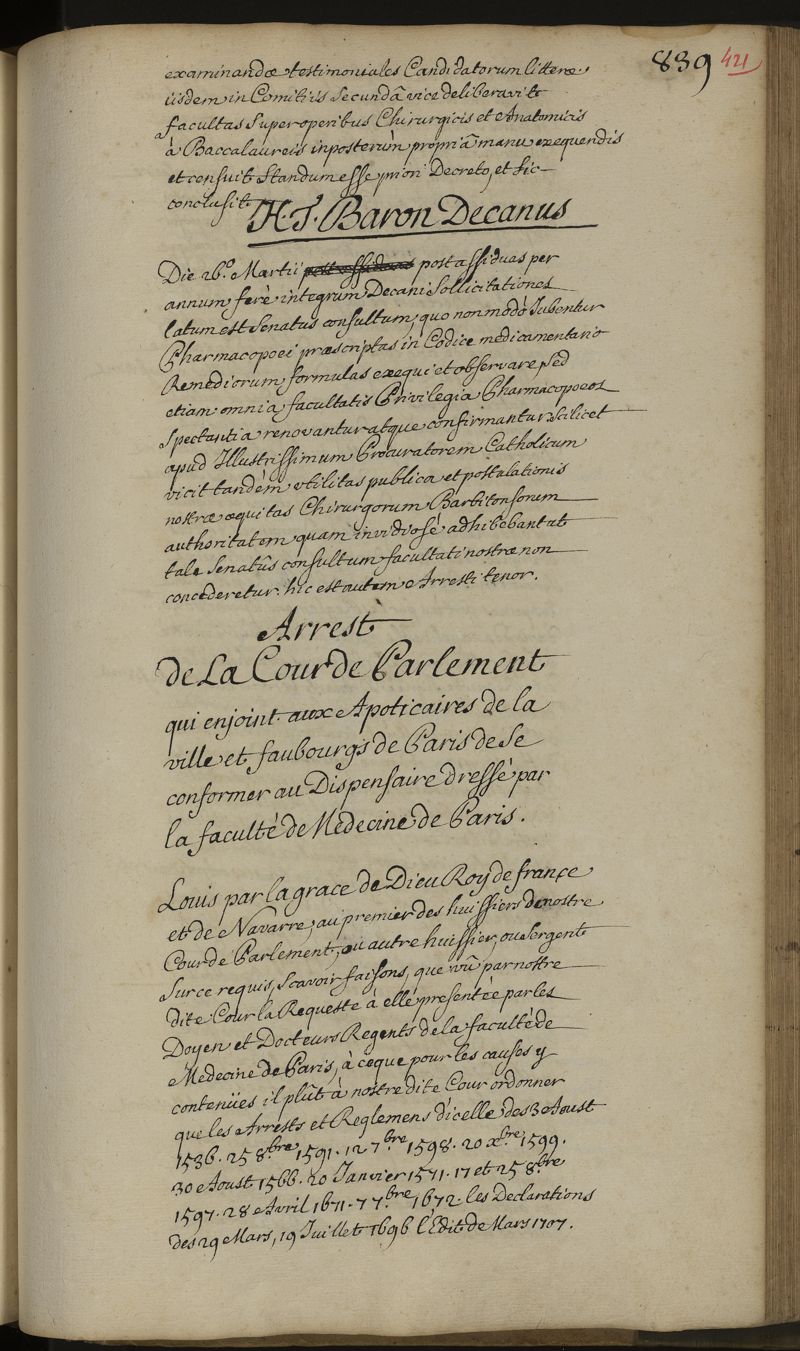 839 421
examinandæ testimoniales Candidatorum litteræ.
iisdem in Comitiis secundâ vice deliberavit
facultas super operibus Chirurgicis et Anatomicis
à Baccalaureis inposterùm propriâ manu exequendis
et censuit standum esse priori Decreto, et sic
conclusit
H. T. Baron Decanus
Die 26.º Martii post assiduas per
annum ferè integrum Decani sollicitationes
latum est Senatus consultum, quo non modò Jubentur
Pharmacopoei præscriptas in Codice medicamentario
Remediorum formulas exequi et observare sed
etiam omnia facultatis Privilegia Pharmacopoeos
spectantia renovantur atque confirmantur scilicet
apud Illustrissimum Procuratorem Catholicum
vicit tandèm utilitas publica et postulationis
nostræ æquitas Chirurgorum Barbitonsorum
authoritatem quam invidiosè adhibebant ut
tale Senatûs consultum facultati nostræ non
concederetur. hic est autem Arresti tenor.
Arrest
de La Cour de Parlement
qui enjoint aux Apoticaires de la
ville et faubourgs de Paris de se
conformer au Dispensaire dressé par
la faculté de Médecine de Paris.
Louis par la grace de Dieu Roy de france
et de Navarre, au premier des huissiers de nostre
Cour de Parlement, ou autre huissier, ou Sergent
sur ce requis, scavoir faisons, que vû par nostre
dite Cour la Requeste à elle presentée par les
Doyen et Docteurs Regents de la faculté de
Medecine de Paris, à ce que pour les causes y
contenües il plût à nostre dite Cour ordonner
que les Arrests et Reglemens d'icelle des 3 Aoust
1536. 25 8.bre 1591. 12 7.bre 1598. 20 x.bre 1599.
30 Aoust 1566. 20 Janvier 1571. 17 et 25 8.bre
1597. 28 Avril 1671. 7 7.bre 1672. les Declarations
des 29 Mars, 19 Juillet 1696 l'Edit de Mars 1707.